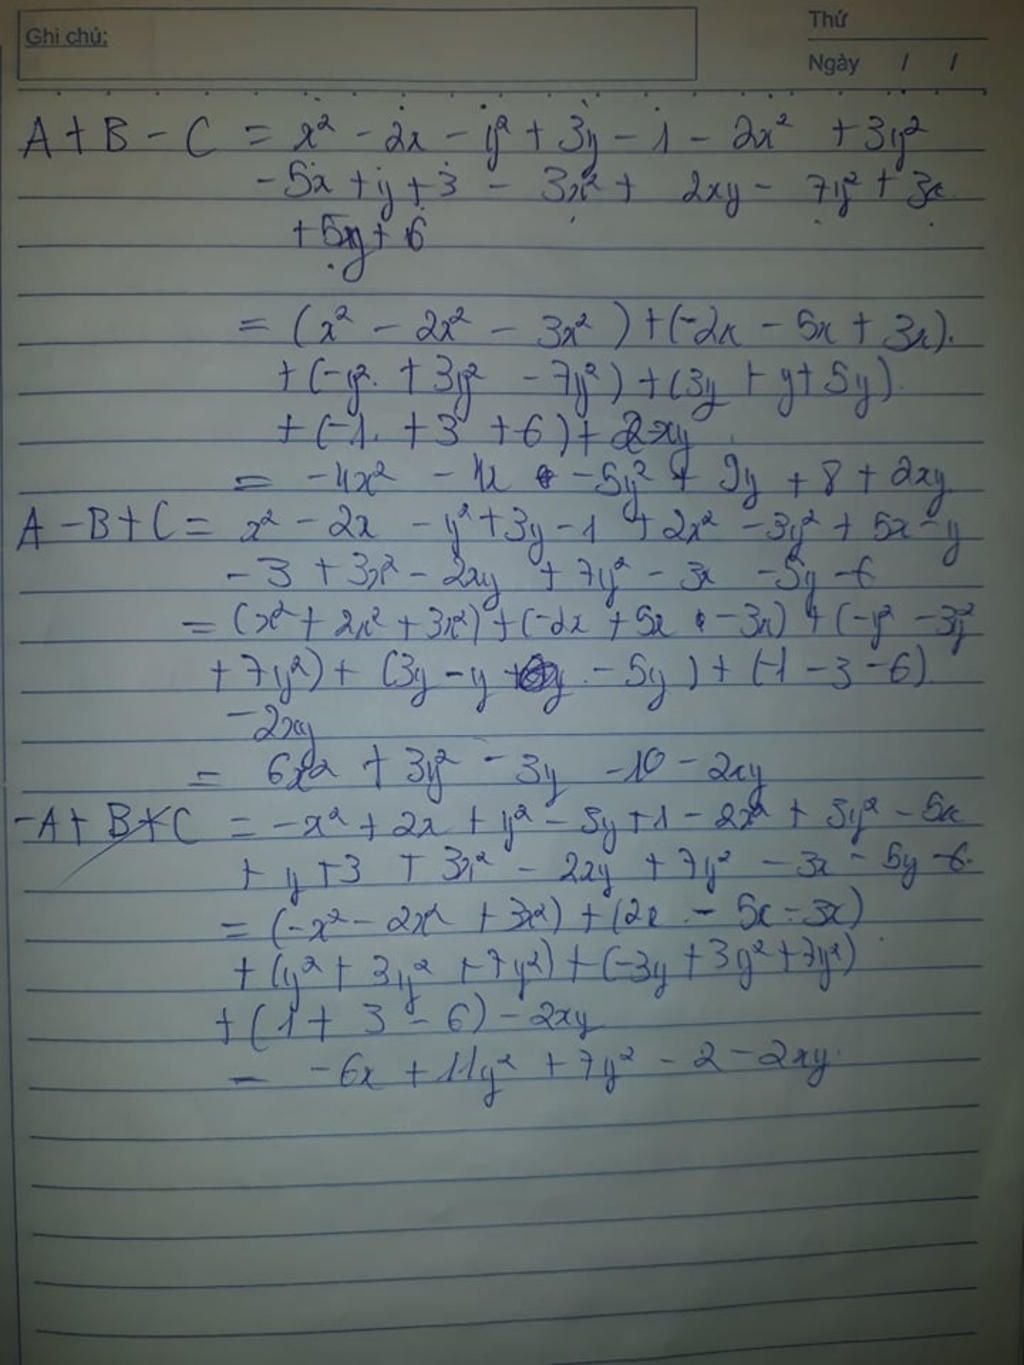 Ghi chú:
Thứ
Ngày / /
A + B - C = x² - 2x - y² + 3y - 1 - 2x² + 3y²
- 5x + y + 3 - 3x² + 2xy - 7y² + 3x
+ 5y + 6
= (x² - 2x² - 3x²) + (-2x - 5x + 3x).
+ (-y² + 3y² - 7y²) + (3y + y + 5y)
+ (-1 + 3 + 6) + 2xy
= -4x² - 4x - 5y² + 9y + 8 + 2xy
A - B + C = x² - 2x - y² + 3y - 1 + 2x² - 3y² + 5x - y
- 3 + 3x² - 2xy + 7y² - 3x - 5y - 6
= (x² + 2x² + 3x²) + (-2x + 5x - 3x) + (-y² - 3y²
+ 7y²) + (3y - y - 5y) + (-1 - 3 - 6)
- 2xy
= 6x² + 3y² - 3y - 10 - 2xy
-A + B + C = -x² + 2x + y² - 3y + 1 - 2x² + 3y² - 5x
+ y + 3 + 3x² - 2xy + 7y² - 3x - 5y - 6
= (-x² - 2x² + 3x²) + (2x - 5x - 3x)
+ (y² + 3y² + 7y²) + (-3y + 3y² + 7y²)
+ (1 + 3 - 6) - 2xy
= -6x + 11y² + 7y² - 2 - 2xy